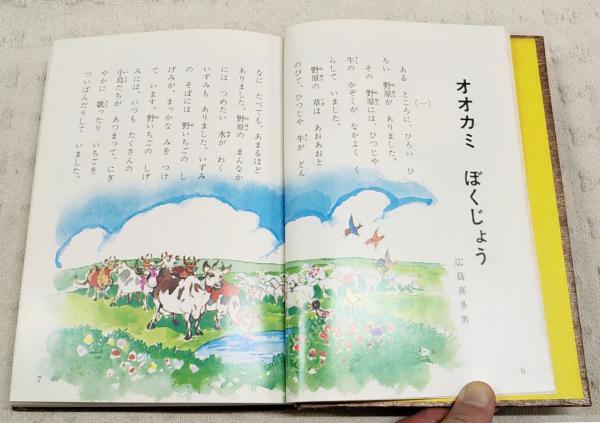 オオカミ ぼくじょう
広島喜多男
(一)
ある ところに、ひろい ひ
ろい 野原が ありました。
その 野原には、ひつじや
牛の かぞくが なかよく く
らして いました。
野原の 草は あおあおと
のびて、ひつじや 牛が どん
なに たべても、あまるほど
ありました。野原の まんなか
には つめたい 水が わく
いずみも ありました。いずみ
の そばには 野いちごの し
げみが、まっかな みを つけ
て います。野いちごの しげ
みには、いつも たくさんの
小鳥たちが あつまって、にぎ
やかに 歌ったり いちごを
ついばんだりして いました。
6
7